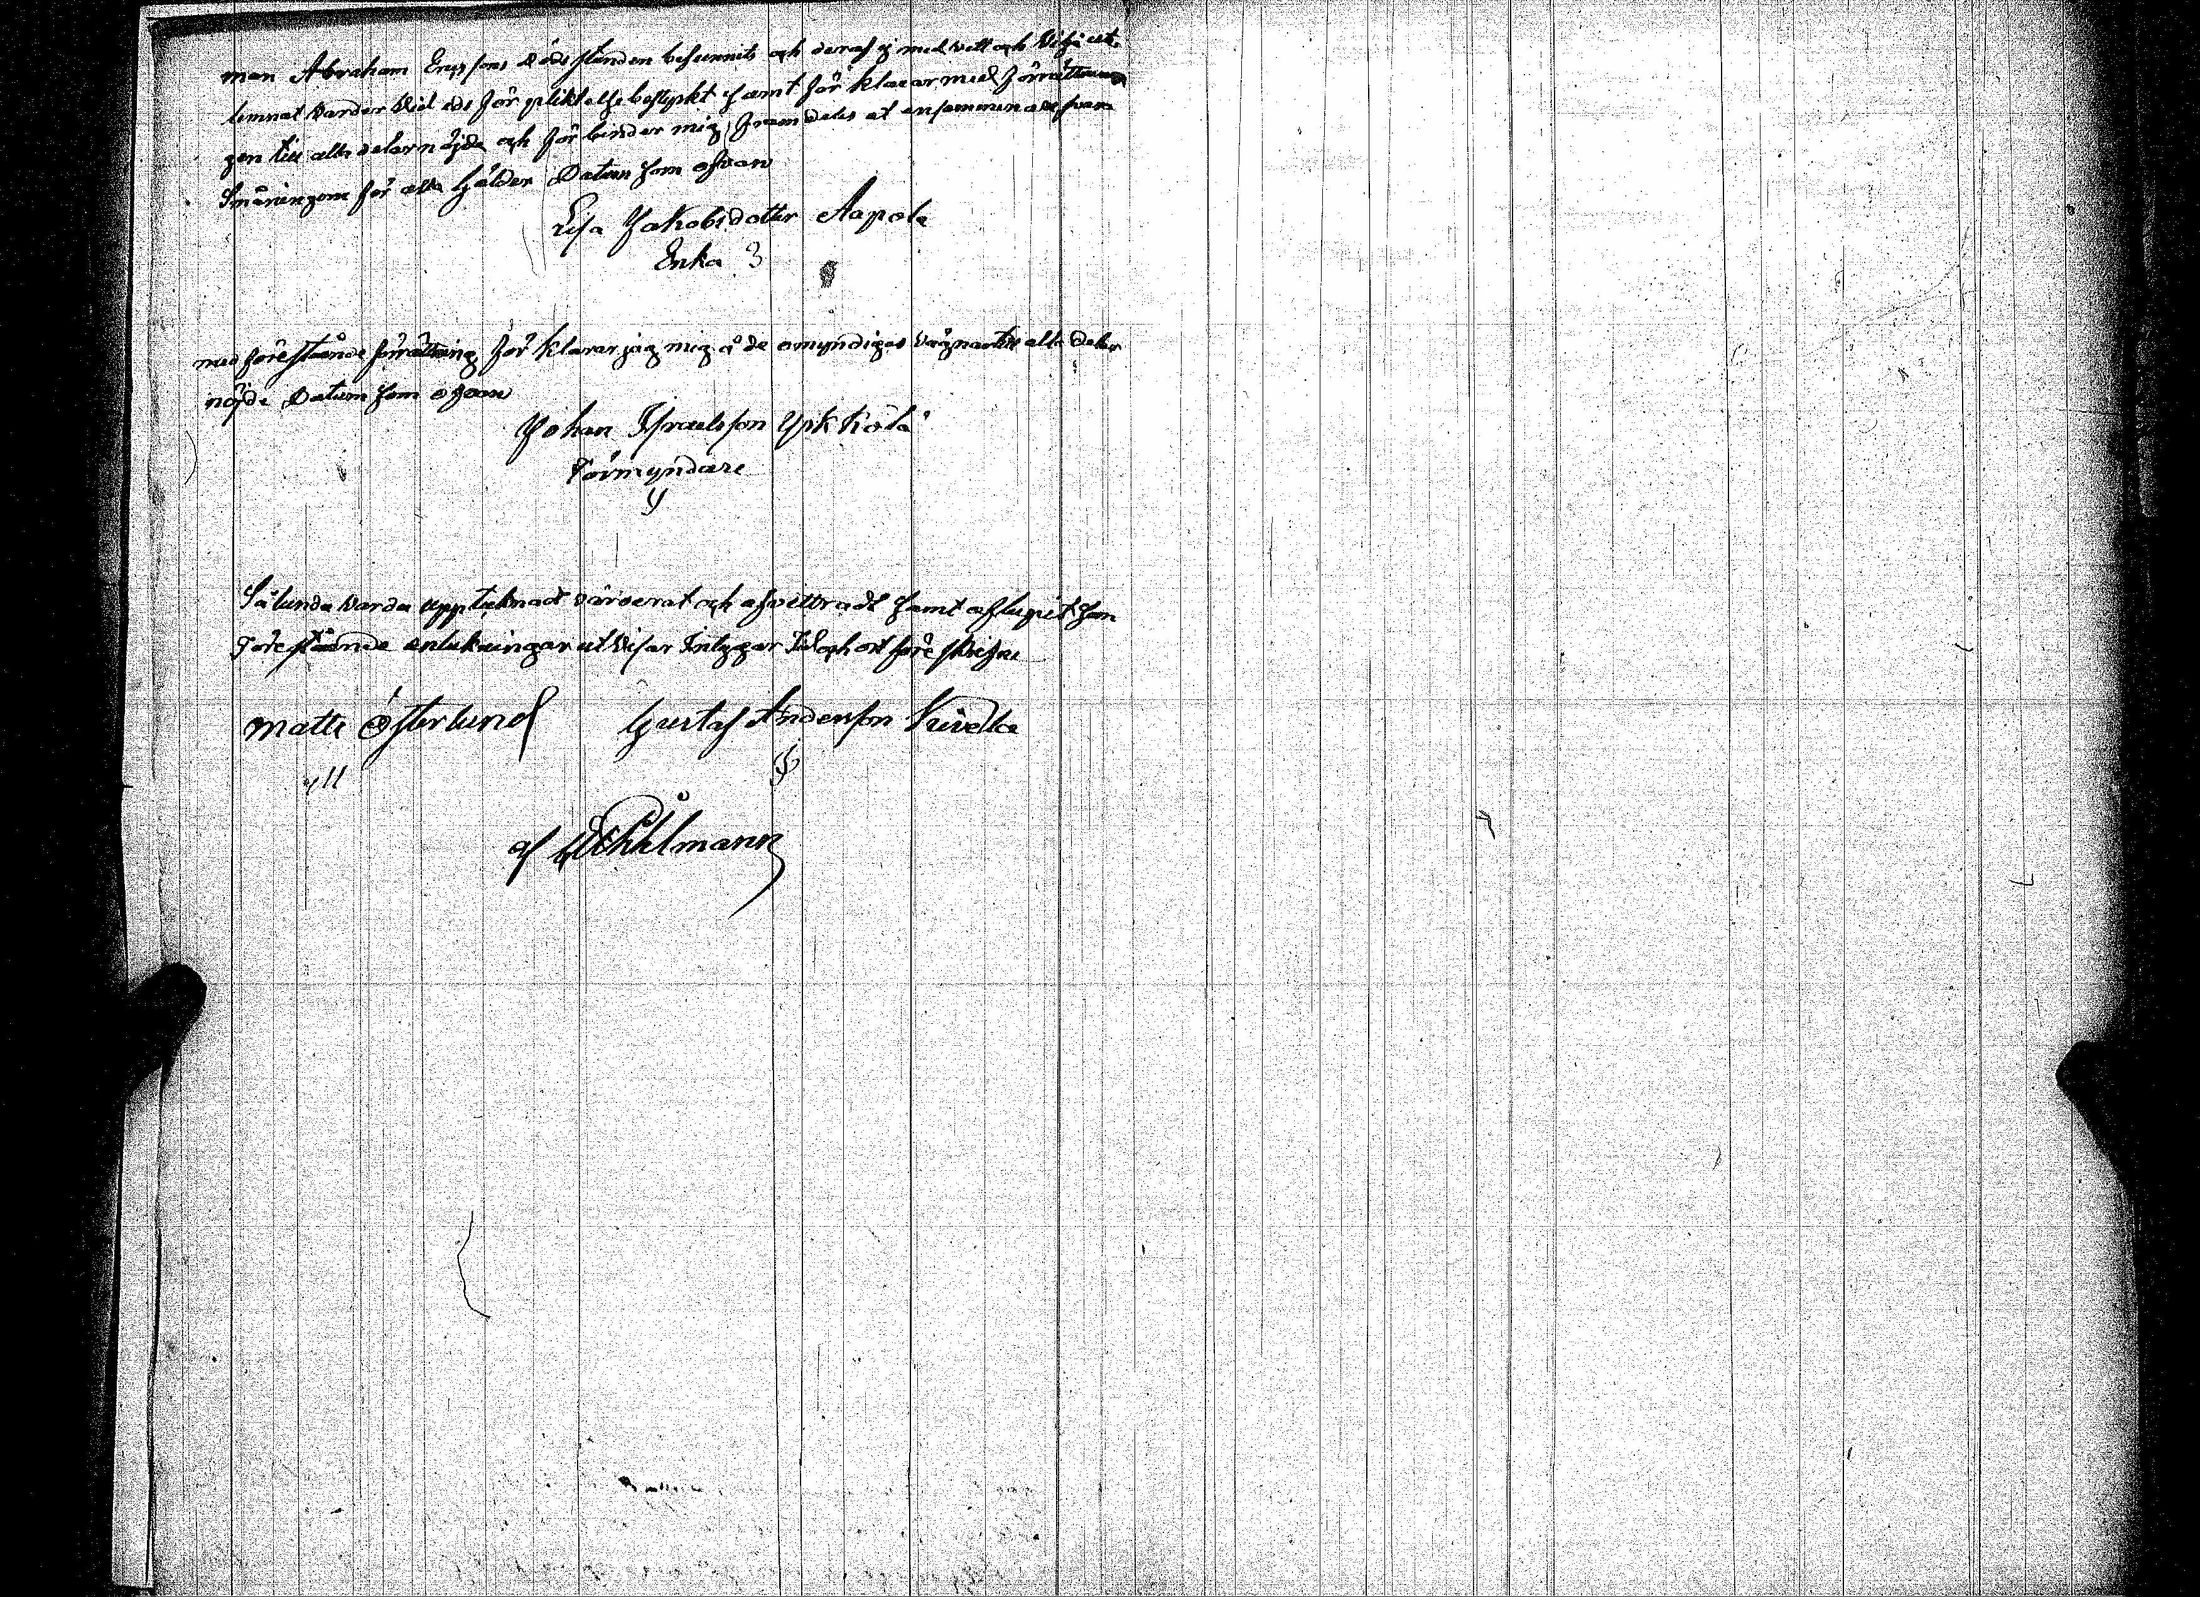 man Abraham Ersssons dödsstunden befunnits och deraf ej med vett och vilja ut-
lemnat varder vid eds förpliktelse bestyrkt samt förklarar med förrättnin
gen till alla delar nöjda och förbinder mig framdeles at ensammen ansvara
Småningom för alla Gälder Datum som ofvan
Lisa Jakobsdotter Aapola
Enka
med förestående förrättning förklarar jag mig å de omyndigas vägnar till alla delar
nöjde Datum som ofvan
Johan Israelsson Ypkkölä
Förmyndare
Sålunda varda upptecknadt värderat och afvittradt samt aflupit som
Förestående anteckningar utvisar Intygar Tid och ort föreskrifne
Matti Österlund Gustaf Andersson
af